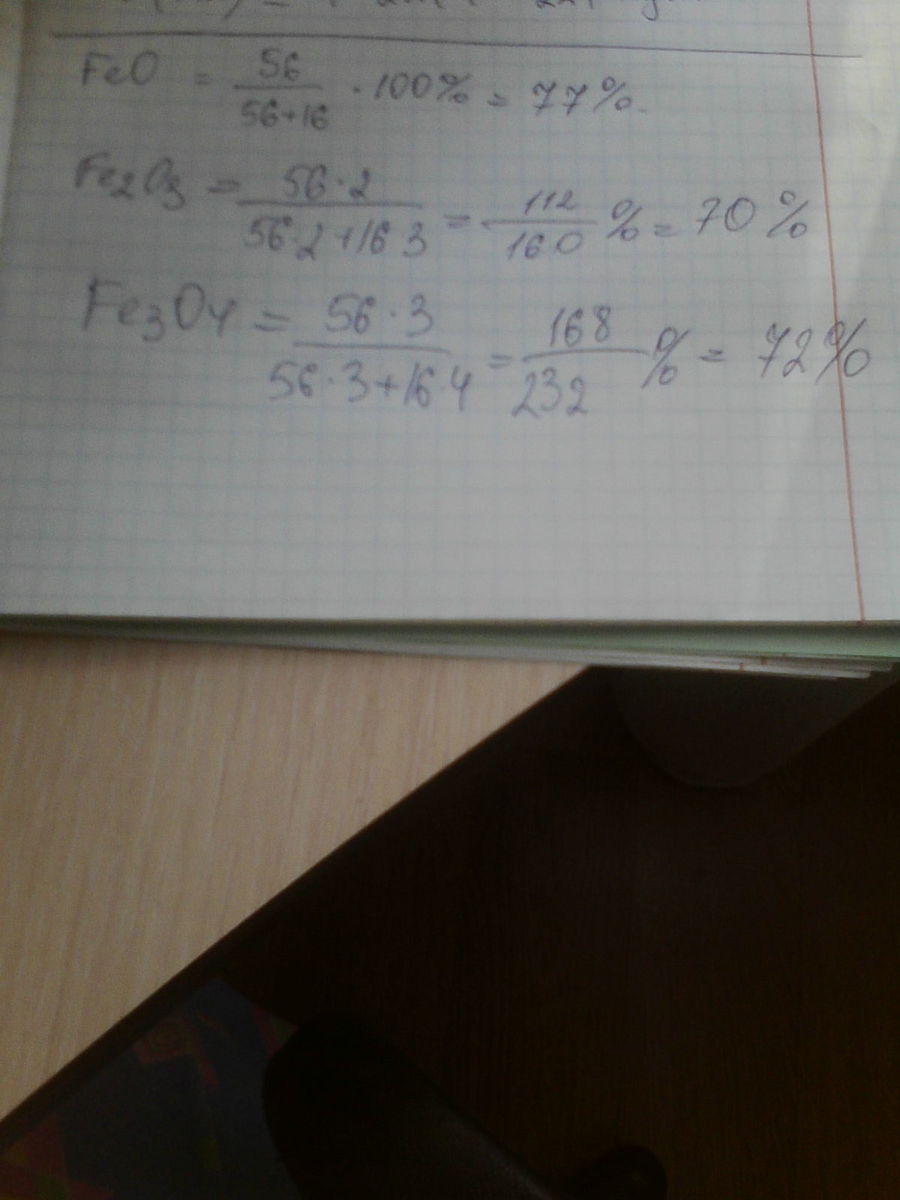 FeO = 56/56+16 · 100% = 77%.
Fe2O3 = 56·2/56·2+16 3 = 112/160 % = 70%
Fe3O4 = 56·3/56·3+16·4 = 168/232 % = 72%